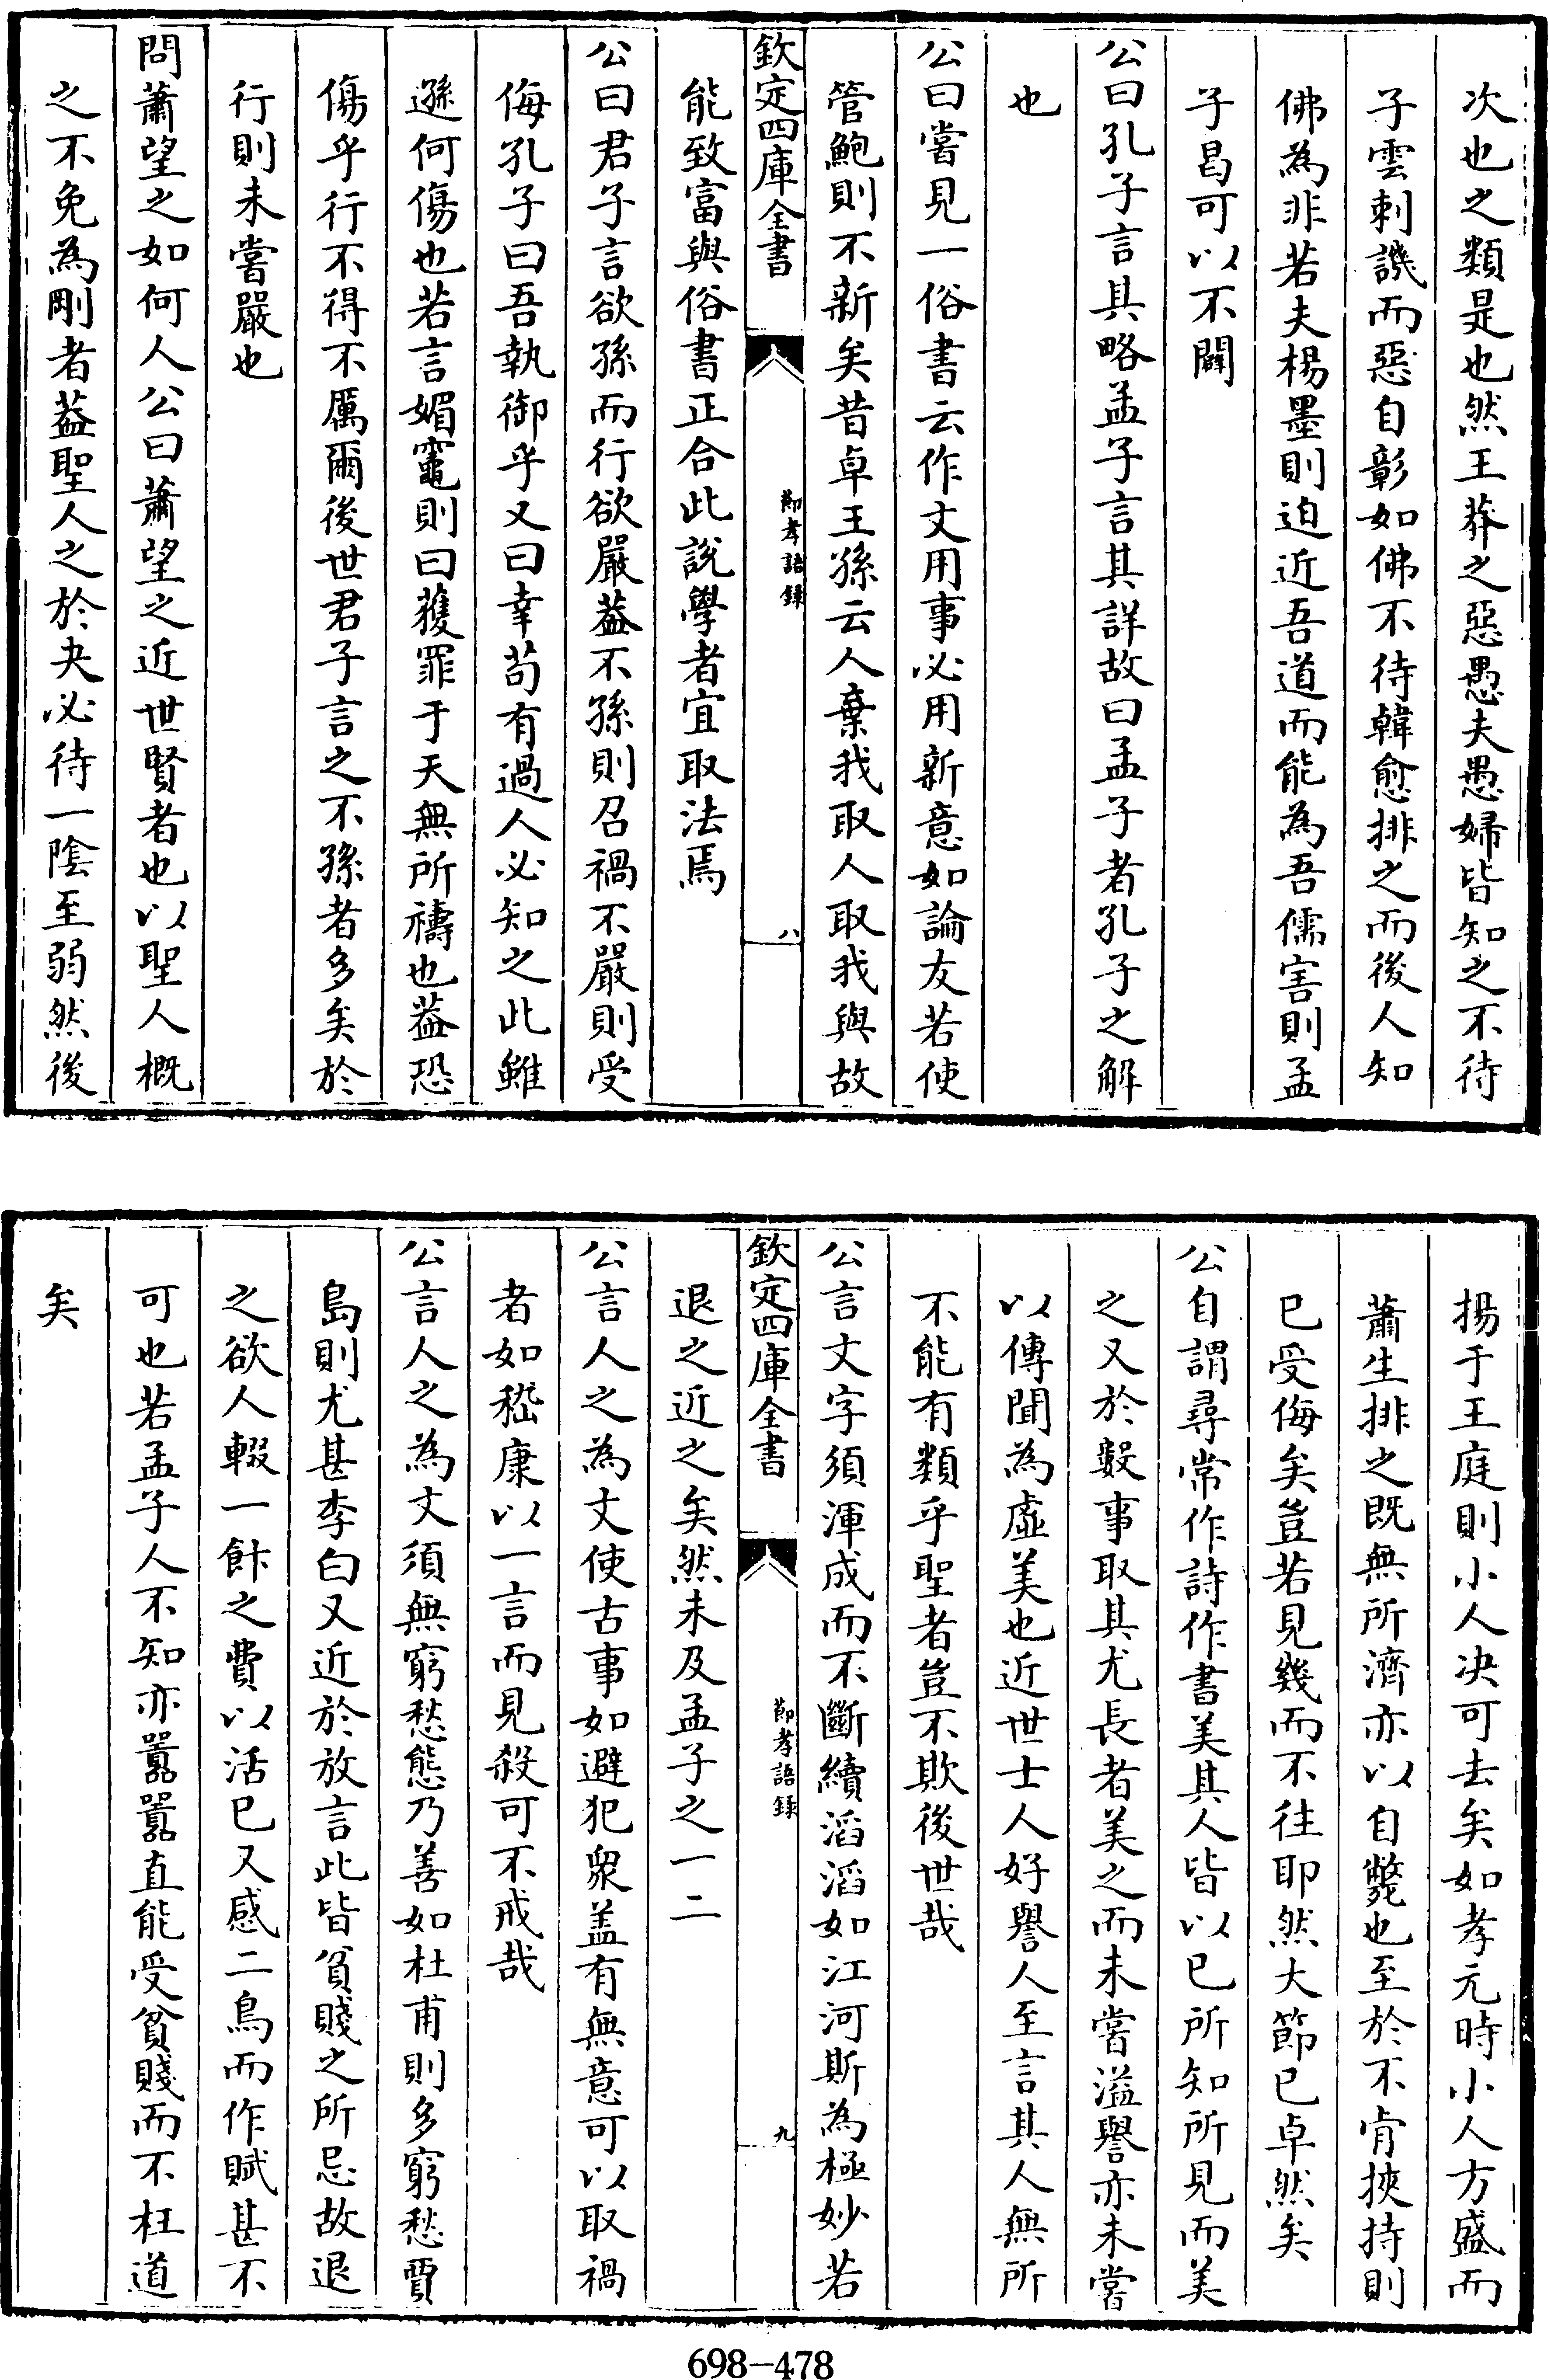 次也之類是也然王莽之惡愚夫愚婦皆知之不待
子雲刺譏而惡自彰如佛不待韓愈排之而後人知
佛為非若夫楊墨則迫近吾道而能為吾儒害則孟
子曷可以不闢
公曰孔子言其略孟子言其詳故曰孟子者孔子之解
也
公曰嘗見一俗書云作文用事必用新意如論友若使
管鮑則不新矣昔卓王孫云人棄我取人取我與故
欽定四庫全書
節孝語錄
八
能致富與俗書正合此說學者宜取法焉
公曰君子言欲孫而行欲嚴葢不孫則召禍不嚴則受
侮孔子曰吾執御乎又曰幸苟有過人必知之此雖
遜何傷也若言媚竈則曰獲罪于天無所禱也葢恐
傷乎行不得不厲爾後世君子言之不孫者多矣於
行則未嘗嚴也
問蕭望之如何人公曰蕭望之近世賢者也以聖人概
之不免為剛者葢聖人之於夬必待一陰至弱然後
揚于王庭則小人决可去矣如孝元時小人方盛而
蕭生排之既無所濟亦以自斃也至於不肯挾持則
已受侮矣豈若見幾而不往耶然大節已卓然矣
公自謂尋常作詩作書美其人皆以已所知所見而美
之又於數事取其尤長者美之而未嘗溢譽亦未嘗
以傳聞為虛美也近世士人好譽人至言其人無所
不能有類乎聖者豈不欺後世哉
公言文字須渾成而不斷續滔滔如江河斯為極妙若
欽定四庫全書
節孝語錄
九
退之近之矣然未及孟子之一二
公言人之為文使古事如避犯衆盖有無意可以取禍
者如嵇康以一言而見殺可不戒哉
公言人之為文須無窮愁態乃善如杜甫則多窮愁賈
島則尤甚李白又近於放言此皆貧賤之所忌故退
之欲人輟一飰之費以活已又感二鳥而作賦甚不
可也若孟子人不知亦囂囂直能受貧賤而不枉道
矣
698-478